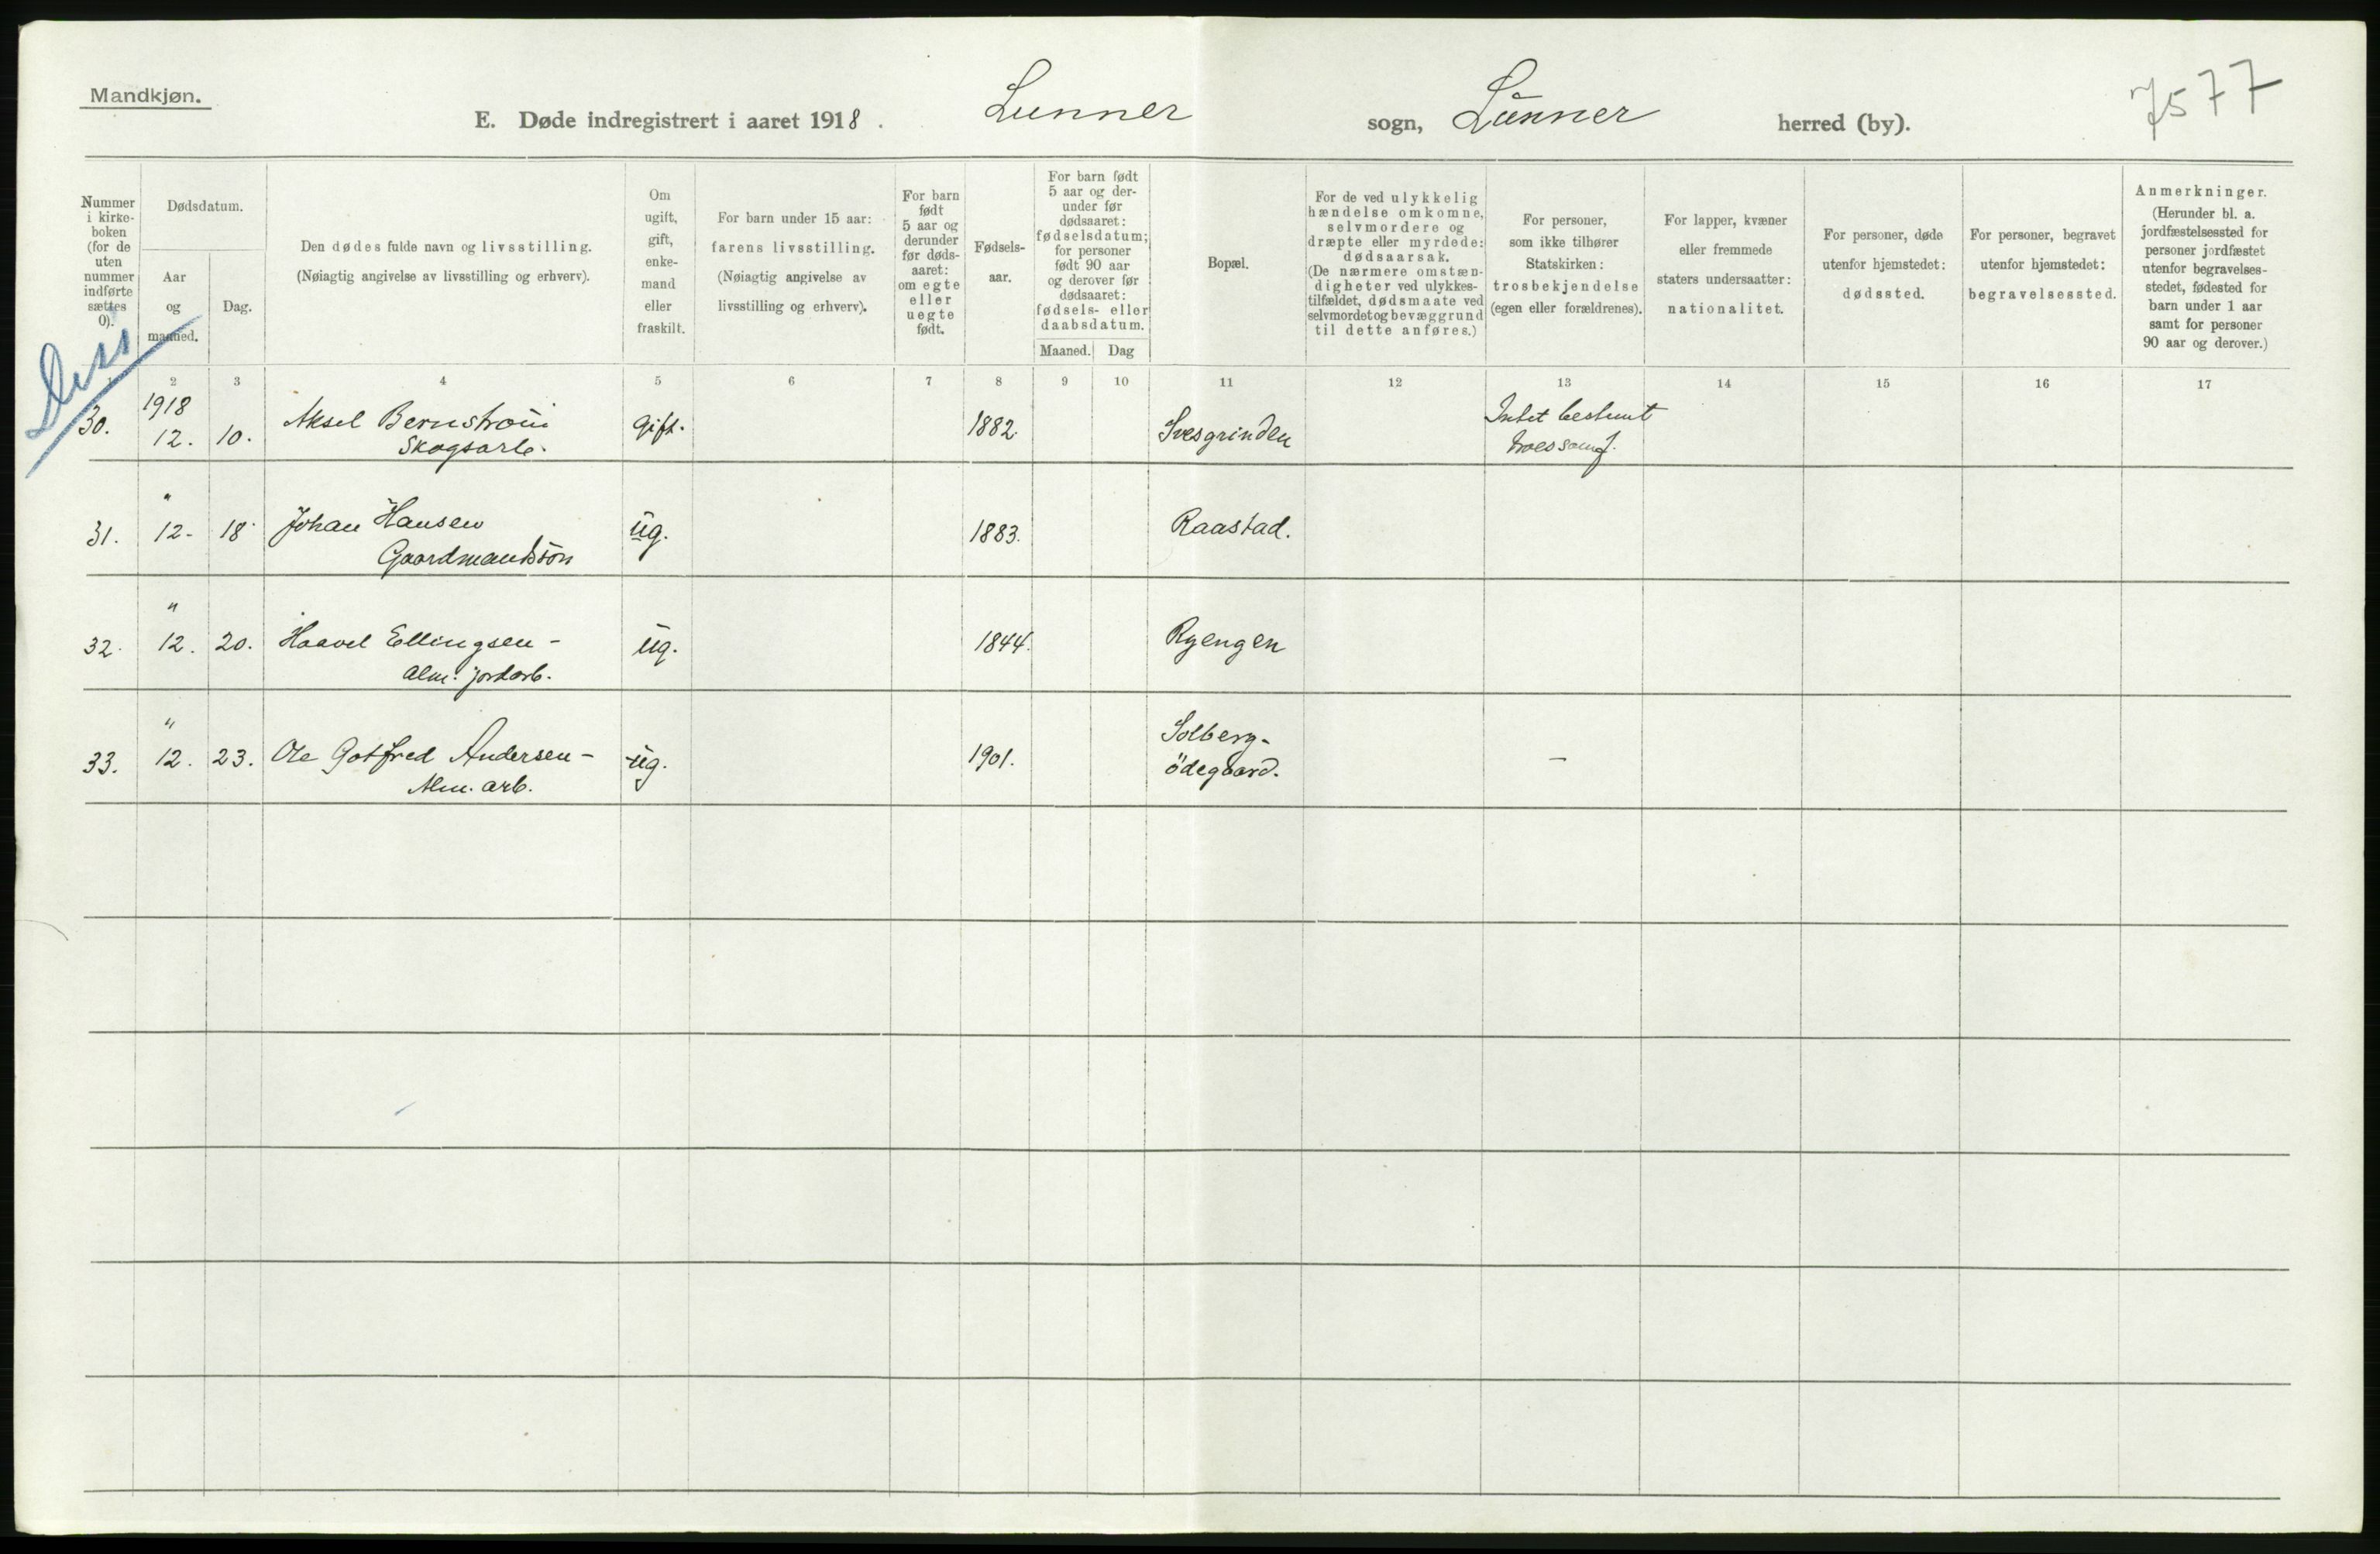 Mandkjøn.
E. Døde indregistrert i aaret 1918. Lunner sogn, Lunner herred (by).
7577
Nummer i kirkeboken (for de uten nummer indførte sættes 0).
Dødsdatum.
Aar og maaned.
Dag.
Den dødes fulde navn og livsstilling.
(Nøiagtig angivelse av livsstilling og erhverv).
Om ugift, gift, enkemand eller fraskilt.
For barn under 15 aar: farens livsstilling.
(Nøiagtig angivelse av livsstilling og erhverv).
For barn født 5 aar og derunder før dødsaaret: om egte eller uegte født.
Fødselsaar.
For barn født 5 aar og derunder før dødsaaret: fødselsdatum; for personer født 90 aar og derover før dødsaaret: fødsels- eller daabsdatum.
Maaned. Dag
Bopæl.
For de ved ulykkelig hændelse omkomne, selvmordere og dræpte eller myrdede: dødsaarsak.
(De nærmere omstændigheter ved ulykkestilfældet, dødsmaate ved selvmordet og bevæggrund til dette anføres.)
For personer, som ikke tilhører Statskirken: trosbekjendelse (egen eller forældrenes).
For lapper, kvæner eller fremmede staters undersaatter: nationalitet.
For personer, døde utenfor hjemstedet: dødssted.
For personer, begravet utenfor hjemstedet: begravelsessted.
Anmerkninger.
(Herunder bl. a. jordfæstelsessted for personer jordfæstet utenfor begravelsesstedet, fødested for barn under 1 aar samt for personer 90 aar og derover.)
1 2 3 4 5 6 7 8 9 10 11 12 13 14 15 16 17
Diss
1918
30. 12. 10. Aksel Bernstrøm Gift. 1882. Intet bestemt
Skogsarb. troessamf.
"
31. 12. 18. Johan Hansen ug. 1883. Raastad.
Gaardmandssön
"
32. 12. 20. Haavel Ellingsen - ug. 1844. Ryengen
alm. jordarb.
"
33. 12. 23. Ole Gotfred Andersen - ug. 1901. Solberg- —
Alm. arb. ödegaard.